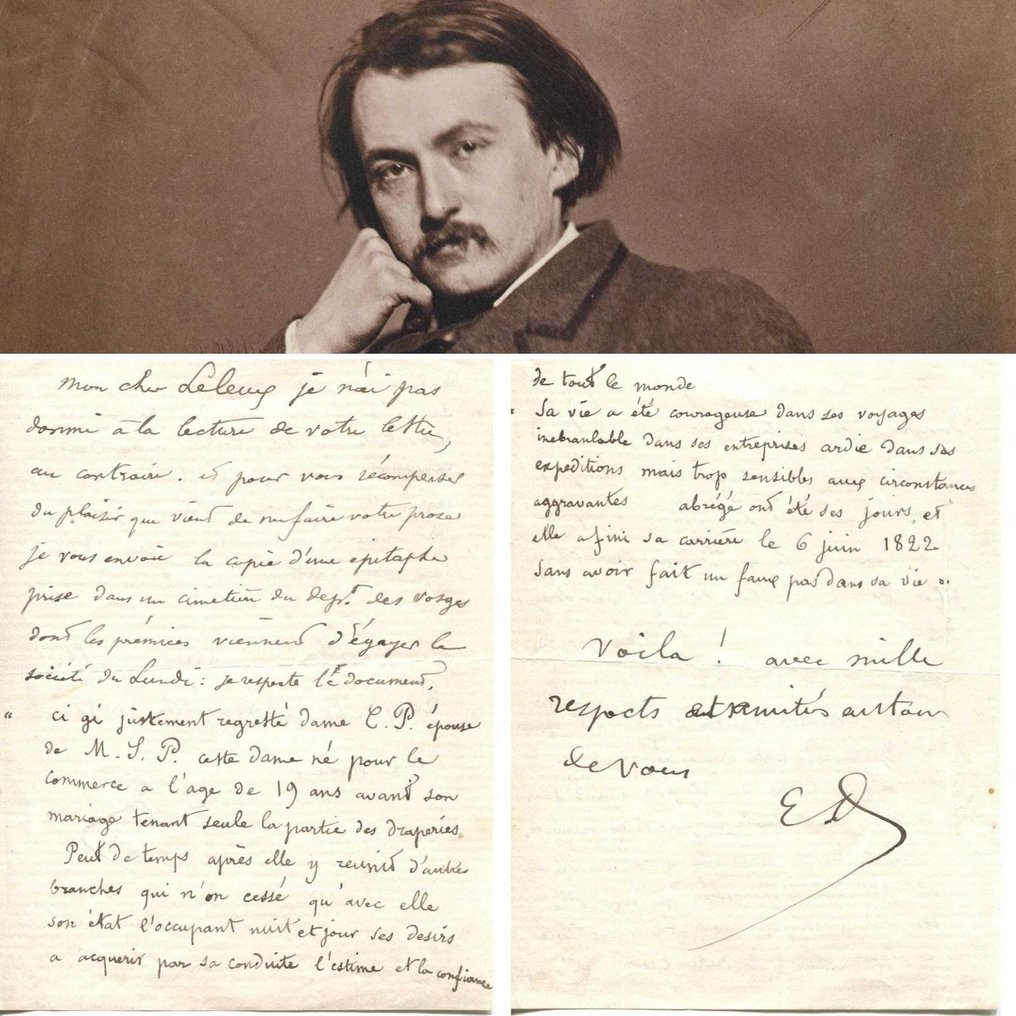 mon cher Leleux je n'ai pas
dormi à la lecture de votre lettre,
au contraire. et pour vous récompenser
du plaisir que vient de me faire votre prose
je vous envoie la copie d'une épitaphe
prise dans un cimetière du dept. des vosges
dont les prémices viennent d'égayer la
société du Lundi : je respecte le document.
" ci gi justement regretté dame C. P. épouse
de M. S. P. cette dame né pour le
commerce a l'âge de 19 ans avant son
mariage tenant seule la partie des draperies.
Peut de temps après elle y reunit d'autres
branches qui n'on cessé qu'avec elle
son état l'occupant nuit et jour ses desirs
a acquerir par sa conduite l'estime et la confiance
de tout le monde
" Sa vie a été courageuse dans ses voyages
inebranlable dans ses entreprises ardie dans ses
expeditions mais trop sensibles aux circonstances
aggravantes abrégé ont été ses jours et
elle a fini sa carrière le 6 juin 1822
sans avoir fait un faux pas dans sa vie "
Voila ! avec mille
respects et amitiés autour
de vous
ED